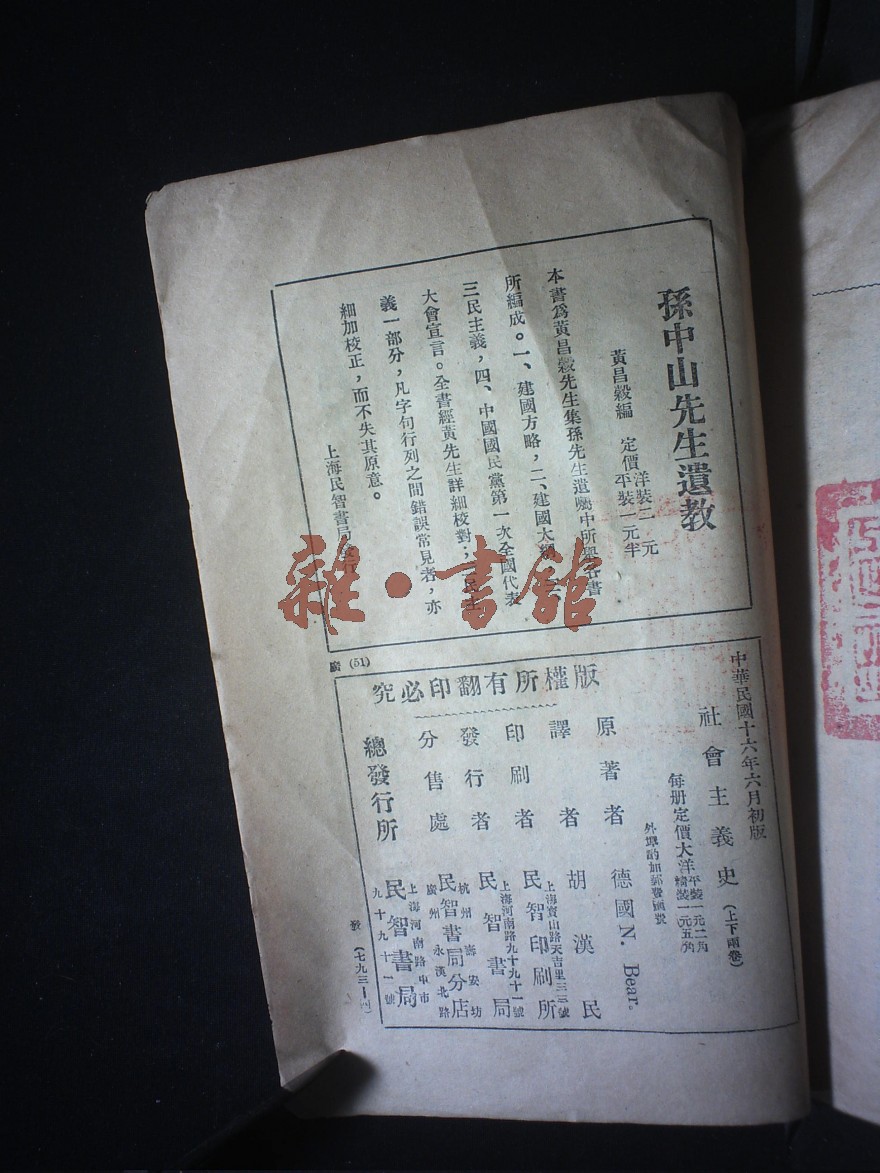 孫中山先生遺教
黃昌穀編　定價洋裝二元平裝一元半
本書爲黃昌穀先生集孫先生遺囑中所
所編成。一、建國方略，二、建國大
三民主義，四、中國國民黨第一次全國代表
大會宣言。全書經黃先生詳細校對；民生
義一部分，凡字句行列之間錯誤常見者，亦
細加校正，而不失其原意。
上海民智書局
雜·書館
廣 (51)
中華民國十六年六月初版
社會主義史（上下兩卷）
每册定價大洋平裝一元二角精裝一元五角
外埠酌加郵費匯費
原著者　德國N. Bear.
譯者　胡漢民
印刷者　民智印刷所　上海寶山路天吉里三三號
發行者　民智書局　上海河南路九十九十一號
分售處　民智書局分店　杭州壽安坊　廣州永漢北路
總發行所　民智書局　上海河南路中市九十九十一號
究必印翻有所權版
發（七九三—四）